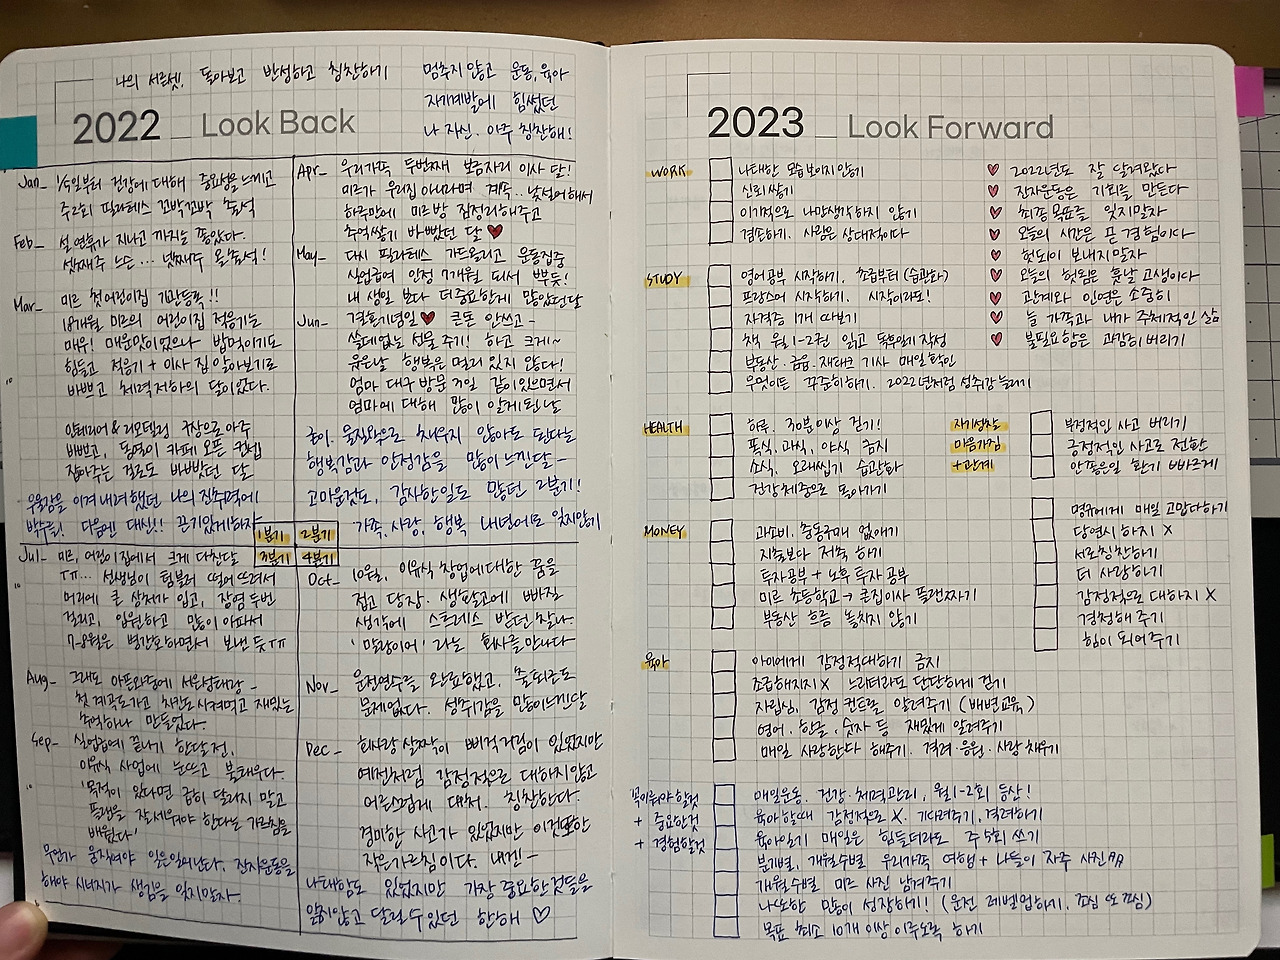 나의 서른셋, 돌아보고 반성하고 칭찬하기
멈추지 않고 운동, 육아
자기계발에 힘썼던
나 자신. 아주 칭찬해!
2022 _ Look Back
Jan_ 1/5일부터 건강에 대해 중요성을 느끼고
주2회 필라테스 꼬박꼬박 출석
Feb_ 설 연휴가 지나고 까지는 좋았다.
셋째주 노는... 넷째주 올출석!
Mar_ 미르 첫 어린이집 기관등록!!
18개월 미르의 어린이집 적응기는
매우! 매운맛이었으나 밥먹이기도
힘들고 적응기 + 이사 집 알아보기로
바쁘고 체력저하의 달이었다.
인테리어 & 리모델링 구상으로 아주
바쁘고, 동생이 카페 오픈 컨셉
잡아주는 걸로도 바빴던 달
우울감을 이겨내려했던 나의 진추력에
박수를! 다음엔 대신!! 끈기있게하자
Apr_ 우리가족 두번째 보금자리 이사 달!
미르가 우리집 아니라며 계속.. 낯설어해서
하루만에 미르방 짐정리해주고
추억쌓기 바빴던 달 ♥
May_ 다시 필라테스 가드올리고 운동집중
실업급여 안정 7개월 되서 뿌듯!
내 생일 보다 더 중요한게 많았던달
Jun_ 결혼기념일♥ 큰돈 안쓰고-
쓸데없는 선물 주기! 하고 크게~
웃은날 행복은 멀리 있지 않다!
엄마 대구 방문 3일 같이있으면서
엄마에 대해 많이 알게된 날
굳이. 움직임으로 채우지 않아도 된다는
행복감과 안정감을 많이 느낀달-
고마운것도, 감사한일도 많던 2분기!
가족, 사랑, 행복 내년에도 잊지않기
1분기 2분기
3분기 4분기
Jul_ 미르, 어린이집에서 크게 다친달
ㅠㅠ... 선생님이 텀블러 떨어뜨려서
머리에 큰 상처가 입고, 장염 두번
걸리고, 입원하고 많이 아파서
7-8월은 병간호하면서 보낸 듯ㅠㅠ
Aug_ 그래도 아둥바둥에 서른살대강 -
첫 계곡도가고 치킨도시켜먹고 재밌는
추억하나 만들었다.
Sep_ 실업급여 끝나기 한달전,
이유식 사업에 눈뜨고 불태우다.
'목적이 있다면 급히 달리지 말고
플랜을 잘세워야 한다는 가르침을
배웠다'
무언가 움직여야 일은일어난다. 잔자운동을
해야 시너지가 생김을 잊지말자.
Oct_ 10월초, 이유식 창업에대한 꿈을
접고 당장. 생활고에 빠질
생각에 스트레스 받던 찰나
'말랑이어' 라는 회사를 만나다
Nov_ 운전연수를 완료했고. 출퇴근도
문제없다. 성취감을 많이느낀달
Dec_ 회사랑 살짝이 삐걱거림이 있었지만
예전처럼 감정적으로 대하지않고
어른스럽게 대처. 칭찬한다.
경미한 사고가 있었지만 이것또한
작은가르침이다. 내겐-
나태함도 있었지만 가장 중요한것들을
잃지않고 달릴수있던 한해 ♡
2023 _ Look Forward
WORK
나태한 모습 보이지 않기
신뢰쌓기
이기적으로 나만생각하지 않기
겸손하기. 사람은 상대적이다
♥ 2022년도 잘 살겨왔다
♥ 잔자운동은 기회를 만든다
♥ 최종목표를 잊지말자
♥ 오늘의 시간은 곧 경험이다
♥ 헛되이 보내지말자
♥ 오늘의 헛됨은 훗날 고생이다
♥ 관계와 인연은 소중히
♥ 늘 가족과 내가 주체적인 삶
♥ 불필요함은 과감히버리기
STUDY
영어공부 시작하기, 초급부터 (습관화)
프랑스어 시작하기. 시작이라도!
자격증 1개 따보기
책 월 1-2권 읽고 독후일기 작성
부동산. 금융. 재테크 기사 매일확인
무엇이든 꾸준히하기. 2022년처럼 성취감 늘리기
HEALTH
하루. 30분이상 걷기!
폭식. 과식, 야식 금지
소식. 오래씹기 습관화
건강체중으로 돌아가기
자기성찰
마음가짐
+관계
부정적인 사고 버리기
긍정적인 사고로 전환
안좋은일 환기 빠르게
명규에게 매일 고맙다하기
당연시 하지 X
서로칭찬하기
더 사랑하기
감정적으로 대하지 X
경청해 주기
힘이 되어주기
MONEY
과소비. 충동구매 없애기
지출보다 저축 하기
투자공부 + 노후 투자 공부
미르 초등학교 → 큰집이사 플랜짜기
부동산 흐름 놓치지 않기
육아
아이에게 감정적대하기 금지
조급해하지 X 느리더라도 단단하게 걷기
자립심, 감정 컨트롤 알려주기 (배변교육)
영어. 한글. 숫자 등 재밌게 알려주기
매일 사랑한다 해주기. 격려·응원·사랑 채우기
꼭이뤄야 할것
+ 중요한것
+ 경험할것
매일운동. 건강·체력관리, 월1-2회 등산!
육아할때 감정적으로 X. 기다려주기, 격려하기
육아일기 매일은 힘들더라도 주5회 쓰기
분기별, 개월수별 우리가족 여행 + 나들이 자주 사진
개월수별 미르 사진 남겨주기
나또한 많이 성장하기! (운전 레벨업하기. 조심 또 조심)
목표 최소 10개 이상 이루도록 하기